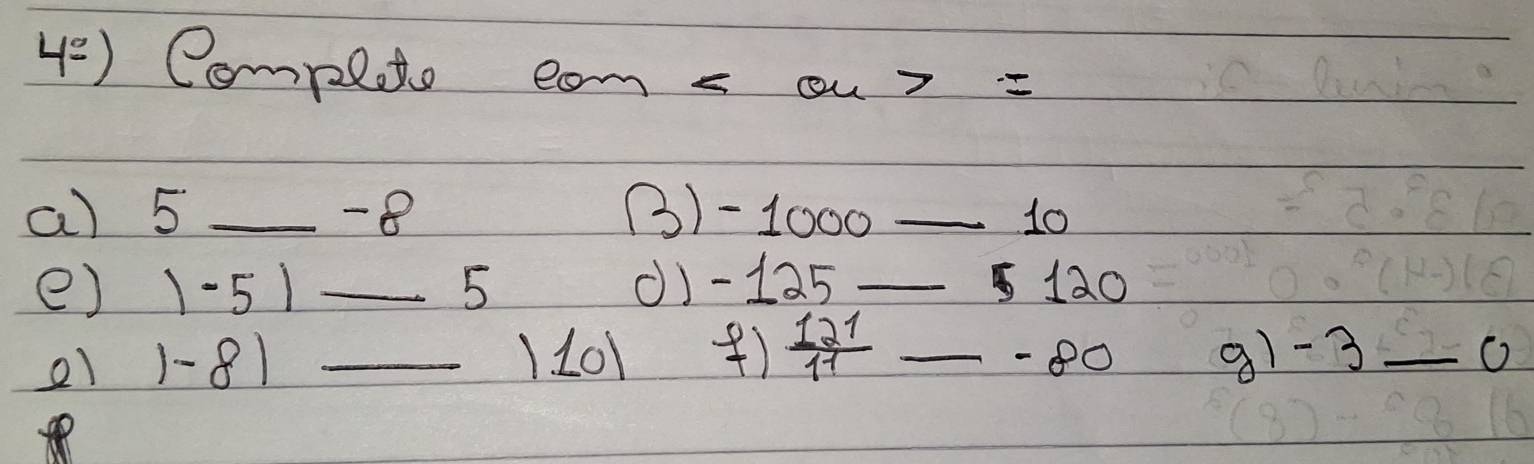 4º) Complete com < ou > =
a) 5 __ -8 B) -1000 __ 10
c) |-5| __ 5 d) -125 __ 120
e) |-8| __ |10| f) 121/11 __ -80 g) -3 __ 0